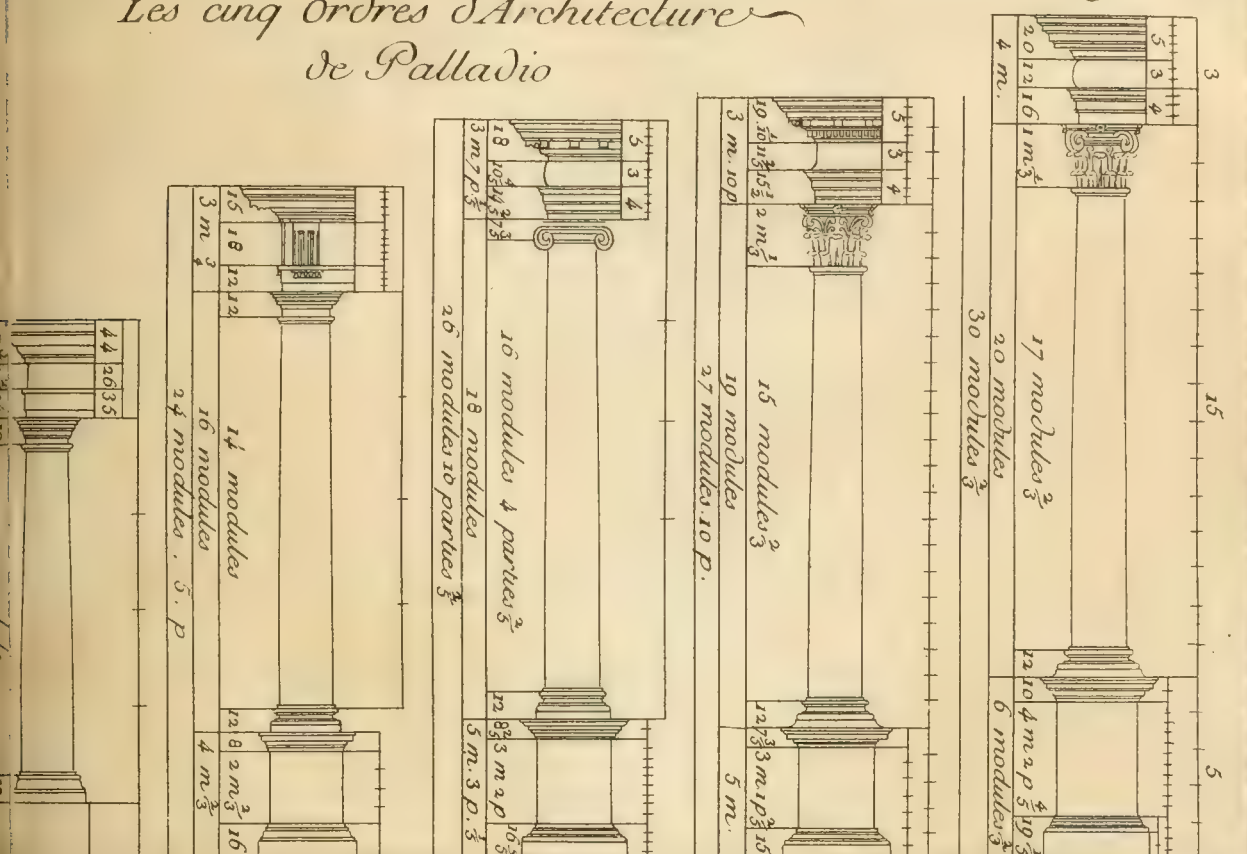 Les cinq Ordres d'Architecture
de Palladio
44
26
35
15
18
12
12
3 m 3/4
14 modules
16 modules
24 modules . 5 . p
12
8
2 m 2/3
16
4 m 2/3
5
3
4
18
3 m 7 p. 1/5
16 modules 4 parties 2/3
18 modules
26 modules 10 parties 2/3
12
3 m 2 p
5 m. 3 p. 1/3
5
3
4
3 m. 10 p
2 m 1/3
15 modules 2/3
19 modules
27 modules. 10 p.
12
3 m 1 p 2/3
15
5 m.
5
3
4
20
12
16
4 m.
17 modules 2/3
20 modules
30 modules 2/3
12
10
4 m 2 p 4/5
6 modules 2/3
3
15
5